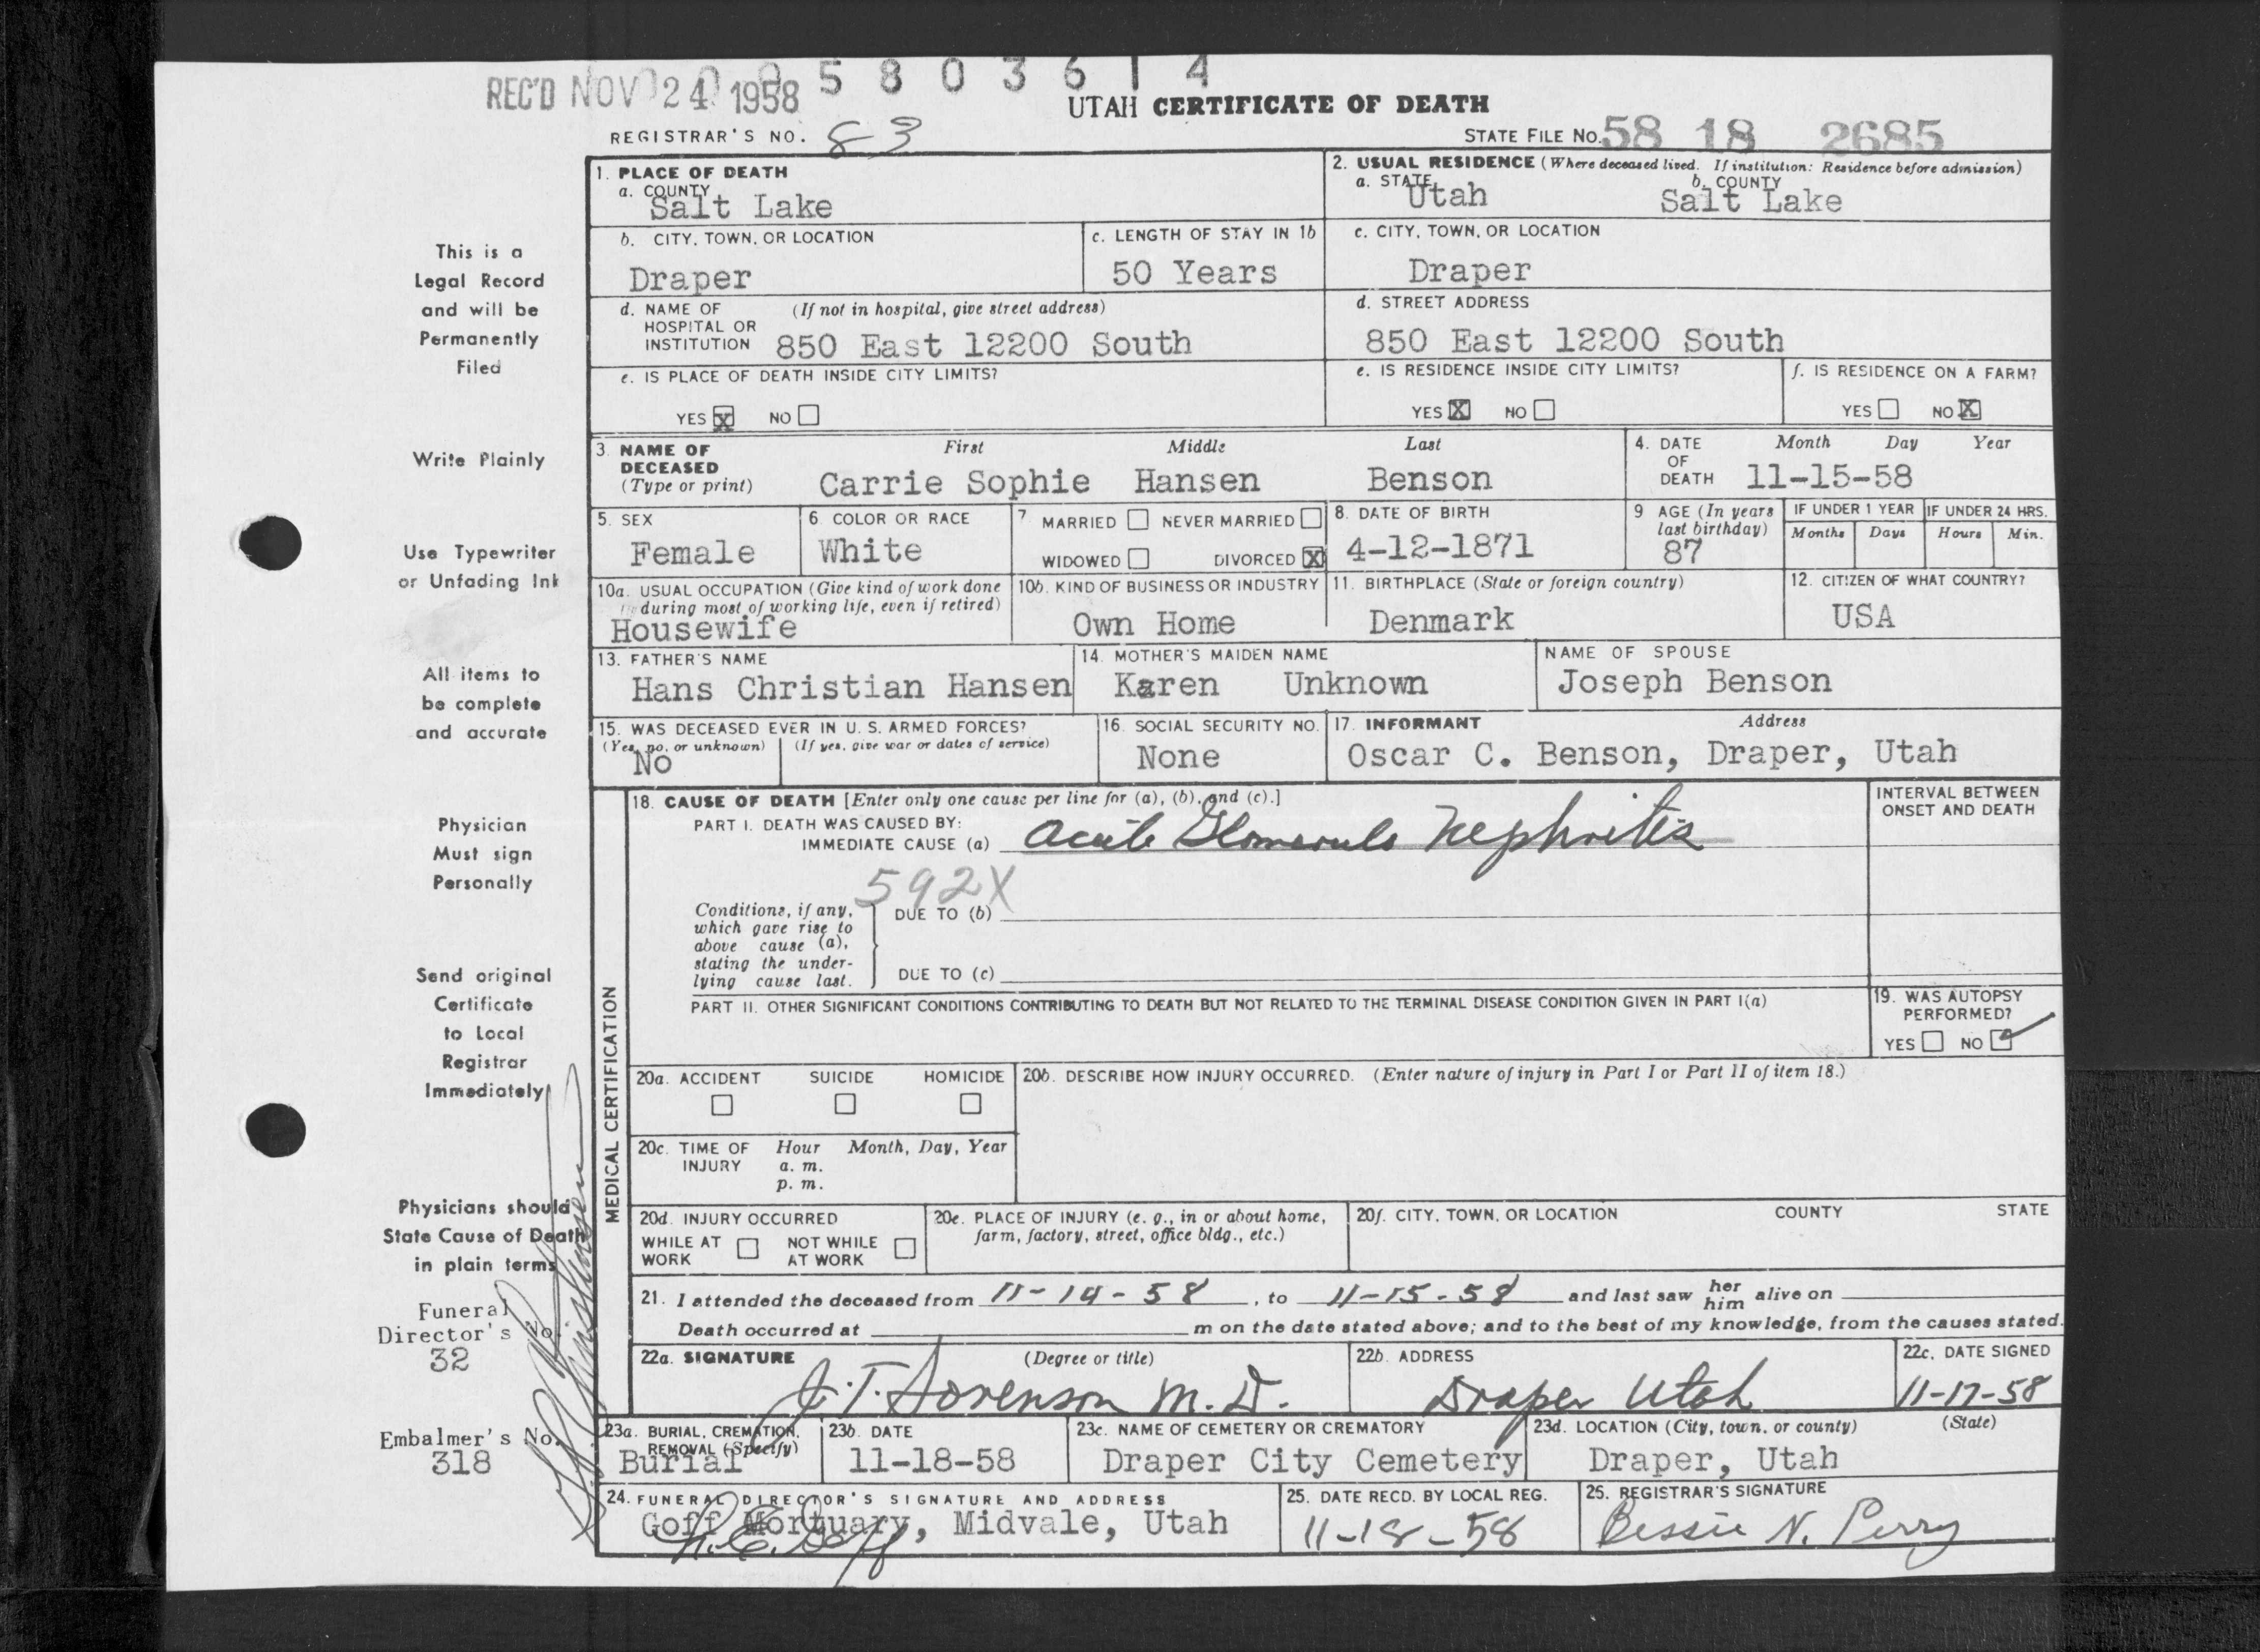 REC'D NOV 24 1958 5 8 0 3 6 1 4
UTAH CERTIFICATE OF DEATH
REGISTRAR'S NO. 83
STATE FILE NO. 58 18 2685
1. PLACE OF DEATH
a. COUNTY
Salt Lake
2. USUAL RESIDENCE (Where deceased lived. If institution: Residence before admission)
a. STATE b. COUNTY
Utah Salt Lake
b. CITY, TOWN, OR LOCATION
Draper
c. LENGTH OF STAY IN 1b
50 Years
c. CITY, TOWN, OR LOCATION
Draper
d. NAME OF HOSPITAL OR INSTITUTION (If not in hospital, give street address)
850 East 12200 South
d. STREET ADDRESS
850 East 12200 South
e. IS PLACE OF DEATH INSIDE CITY LIMITS?
YES X NO
e. IS RESIDENCE INSIDE CITY LIMITS?
YES X NO
f. IS RESIDENCE ON A FARM?
YES NO X
3. NAME OF DECEASED (Type or print)
First Middle Last
Carrie Sophie Hansen Benson
4. DATE OF DEATH Month Day Year
11-15-58
5. SEX
Female
6. COLOR OR RACE
White
7 MARRIED NEVER MARRIED
WIDOWED DIVORCED X
8. DATE OF BIRTH
4-12-1871
9 AGE (In years last birthday)
87
IF UNDER 1 YEAR IF UNDER 24 HRS.
Months Days Hours Min.
10a. USUAL OCCUPATION (Give kind of work done during most of working life, even if retired)
Housewife
10b. KIND OF BUSINESS OR INDUSTRY
Own Home
11. BIRTHPLACE (State or foreign country)
Denmark
12. CITIZEN OF WHAT COUNTRY?
USA
13. FATHER'S NAME
Hans Christian Hansen
14. MOTHER'S MAIDEN NAME
Karen Unknown
NAME OF SPOUSE
Joseph Benson
15. WAS DECEASED EVER IN U. S. ARMED FORCES?
(Yes, no, or unknown) (If yes, give war or dates of service)
No
16. SOCIAL SECURITY NO.
None
17. INFORMANT Address
Oscar C. Benson, Draper, Utah
MEDICAL CERTIFICATION
18. CAUSE OF DEATH [Enter only one cause per line for (a), (b), and (c).]
PART I. DEATH WAS CAUSED BY:
IMMEDIATE CAUSE (a) Acute Glomerulo Nephritis
INTERVAL BETWEEN ONSET AND DEATH
592X
Conditions, if any, which gave rise to above cause (a), stating the underlying cause last.
DUE TO (b)
DUE TO (c)
PART II. OTHER SIGNIFICANT CONDITIONS CONTRIBUTING TO DEATH BUT NOT RELATED TO THE TERMINAL DISEASE CONDITION GIVEN IN PART I(a)
19. WAS AUTOPSY PERFORMED?
YES NO
20a. ACCIDENT SUICIDE HOMICIDE
20b. DESCRIBE HOW INJURY OCCURRED. (Enter nature of injury in Part I or Part II of item 18.)
20c. TIME OF INJURY Hour Month, Day, Year
a. m.
p. m.
20d. INJURY OCCURRED
WHILE AT WORK NOT WHILE AT WORK
20e. PLACE OF INJURY (e. g., in or about home, farm, factory, street, office bldg., etc.)
20f. CITY, TOWN, OR LOCATION COUNTY STATE
21. I attended the deceased from 11-14-58, to 11-15-58 and last saw her him alive on
Death occurred at m on the date stated above; and to the best of my knowledge, from the causes stated.
22a. SIGNATURE (Degree or title)
J. T. Sorenson M. D.
22b. ADDRESS
Draper Utah
22c. DATE SIGNED
11-17-58
23a. BURIAL, CREMATION, REMOVAL (Specify)
Burial
23b. DATE
11-18-58
23c. NAME OF CEMETERY OR CREMATORY
Draper City Cemetery
23d. LOCATION (City, town, or county) (State)
Draper, Utah
24. FUNERAL DIRECTOR'S SIGNATURE AND ADDRESS
Goff Mortuary, Midvale, Utah
25. DATE RECD. BY LOCAL REG.
11-18-58
25. REGISTRAR'S SIGNATURE
Bessie N. Perry
This is a
Legal Record
and will be
Permanently
Filed
Write Plainly
Use Typewriter
or Unfading Ink
All items to
be complete
and accurate
Physician
Must sign
Personally
Send original
Certificate
to Local
Registrar
Immediately
Physicians should
State Cause of Death
in plain terms
Funeral
Director's No.
32
Embalmer's No.
318